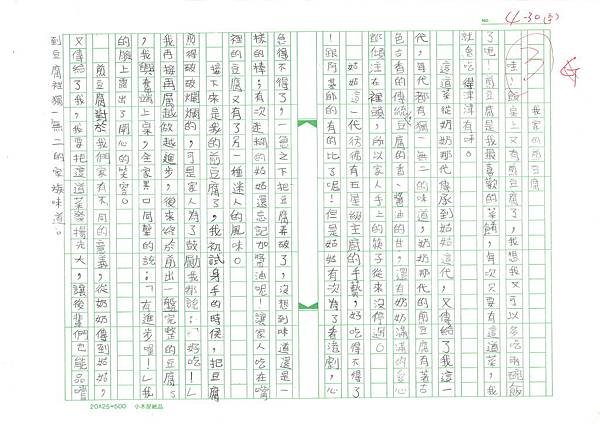 NO. 4-30(5)
3
我家的煎豆腐
哇！飯桌上又有煎豆腐了，我想我又可以多吃兩碗飯
了吧！煎豆腐是我最喜歡的菜餚，每次只要有這道菜，我
就會吃得津津有味。
這道菜從奶奶那代傳承到姑姑這代，又傳給了我這一
代，每代都有獨一無二的味道，奶奶那代的煎豆腐有著古
色古香的傳統，豆腐的香、醬油的甘，還有奶奶滿滿的愛心
都傾注在裡頭，所以家人手上的筷子從來沒停過。
姑姑這一代彷彿有五星級主廚的手藝，好吃得不得了
！跟阿基師的有的比了呢！但是姑姑有次為了看港劇，心
急得不得了，一急之下把豆腐弄破了，沒想到味道還是一
樣的棒；有次迷糊的姑姑還忘記加醬油呢！讓家人吃在嘴
裡的豆腐又有了另一種迷人的風味。
接下來是我的煎豆腐了，我初試身手的時候，把豆腐
煎得破破爛爛的，可是家人為了鼓勵我都說：「好吃！」
我再接再厲越做越進步，後來終於煎出一盤完整的豆腐
，我興奮端上桌，全家異口同聲的說：「有進步喔！」我
的臉上露出了開心的笑容。
煎豆腐對於我們家有不同的意義，從奶奶傳到姑姑，
又傳給了我，我要把這道菜發揚光大，讓後輩們也能品嚐
到豆腐裡獨一無二的家族味道。
20X25=500 小木屋紙品